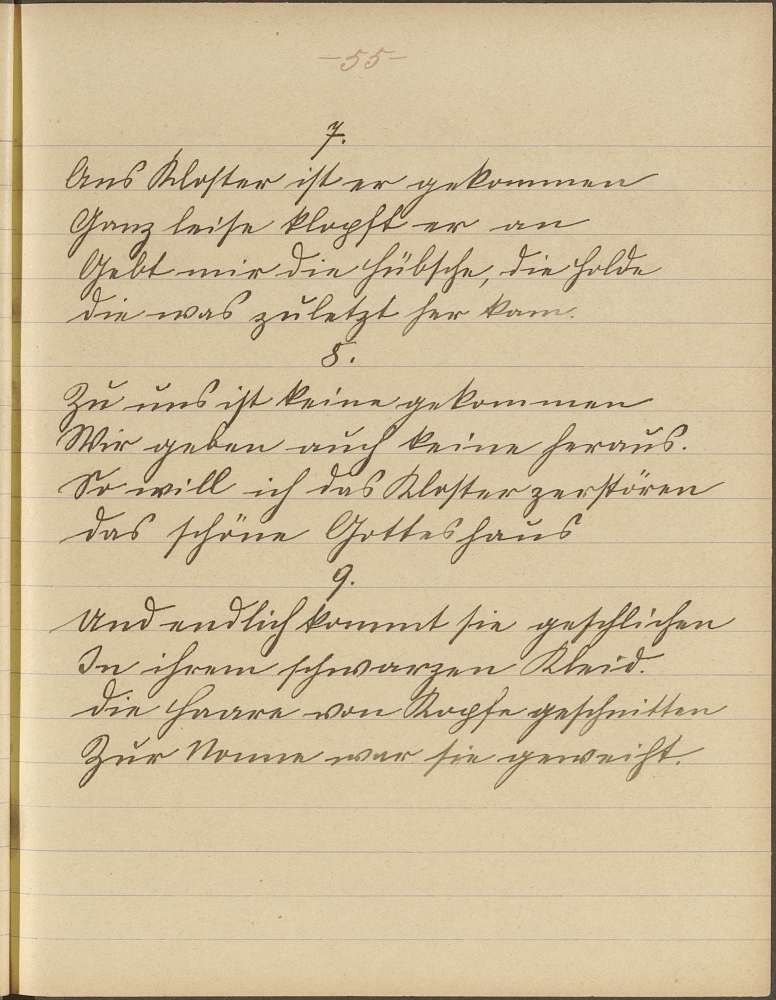 -55-
7.
Ans Kloster ist er gekommen
Ganz leise klopft er an
Gebt mir die hübsche, die holde
die was zuletzt her kam.
8.
Zu uns ist keine gekommen
Wir geben auch keine heraus.
So will ich das Kloster zerstören
das schöne Gotteshaus
9.
Und endlich kommt sie geschlichen
In ihrem schwarzen Kleid.
die Haare von Kopfe geschnitten
Zur Nonne war sie geweiht.